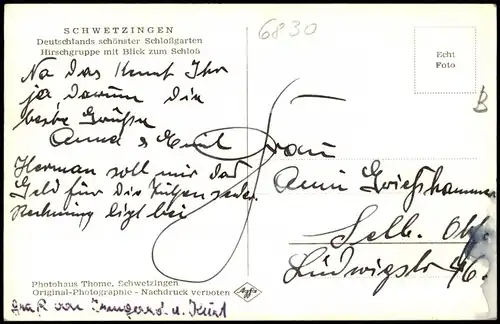 SCHWETZINGEN
Deutschlands schönster Schloßgarten
Hirschgruppe mit Blick zum Schloß
6830
Echt
Foto
B
Na das kennt Ihr
ja darum die
beste Grüße
Anna & Emil
Herman soll mir das
Geld für die
Rechnung ligt bei
Frau
Anni Grieshammer
Selb. Obf.
Ludwigstr 46.
Photohaus Thome, Schwetzingen
Original-Photographie - Nachdruck verboten
Gruß von u. Kurt